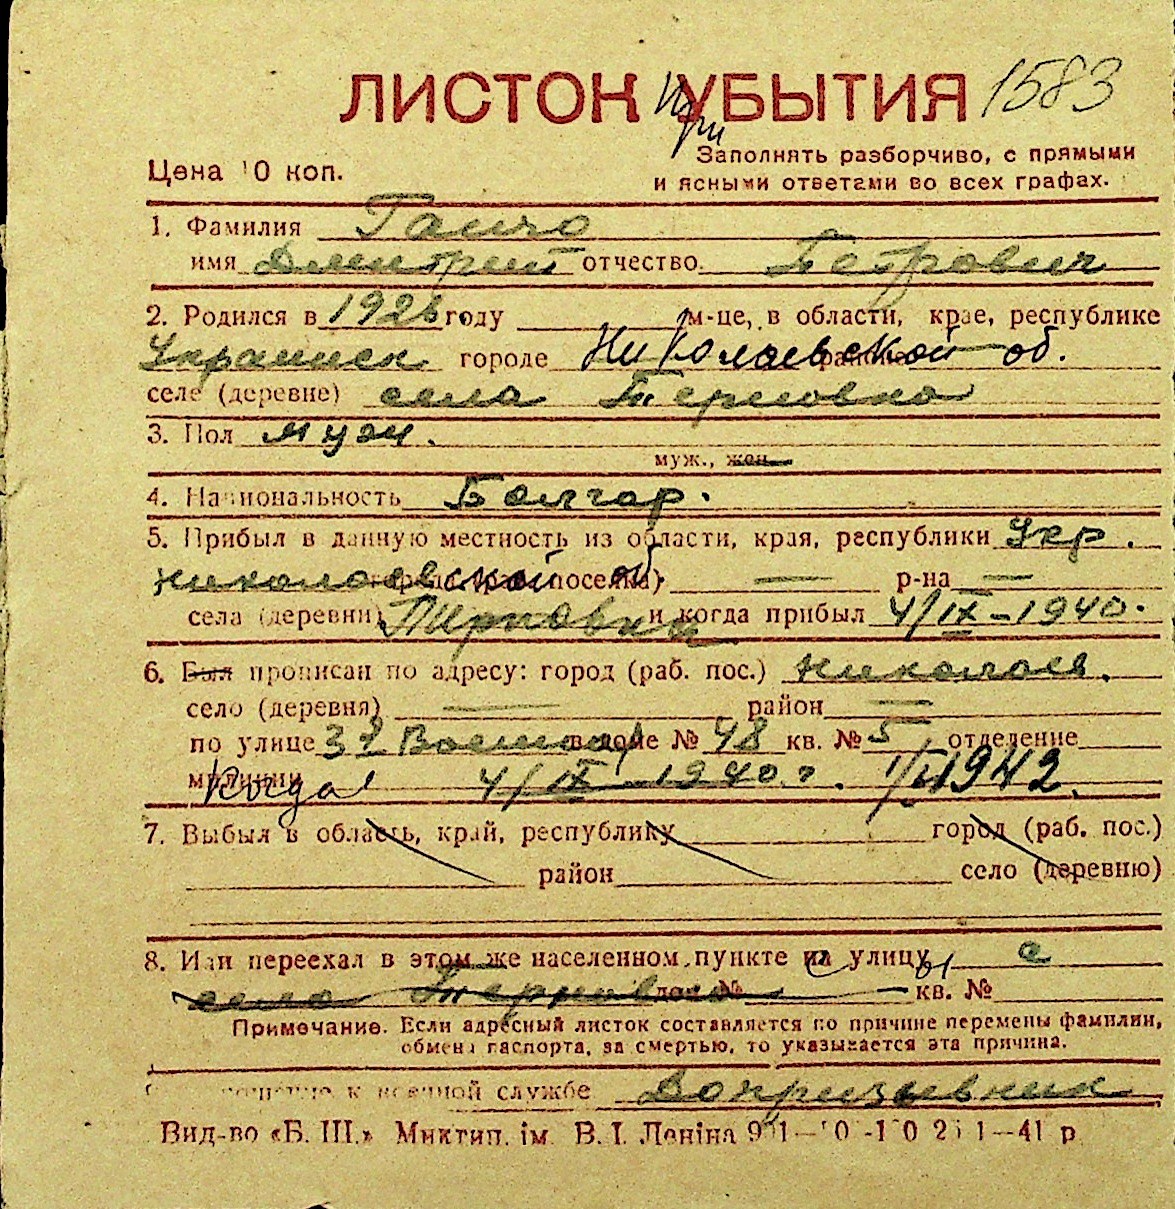 ЛИСТОК УБЫТИЯ 1583
при
Цена 10 коп.
Заполнять разборчиво, с прямыми
и ясными ответами во всех графах.
1. Фамилия Ганчо
имя Дмитрий отчество Петрович
2. Родился в 1926 году м-це, в области, крае, республике
Украинск городе Николаевской об.
селе (деревне) села Терновка
3. Пол муж.
муж., жен.
4. Национальность Болгар.
5. Прибыл в данную местность из области, края, республики Укр.
николаевской об. поселка) — р-на —
села (деревни) Терновки и когда прибыл 4/IX-1940.
6. Был прописан по адресу: город (раб. пос.) Николаев.
село (деревня) — район —
по улице 3 Военная доме № 48 кв. № 5 отделение
милиции Когда 4/IX 1940 г. 1942.
7. Выбыл в область, край, республику город (раб. пос.)
район село (деревню)
8. Или переехал в этом же населенном пункте на улицу с
села Терновка дом № кв. №
Примечание. Если адресный листок составляется по причине перемены фамилии,
обмена паспорта, за смертью, то указывается эта причина.
к военной службе Допризывник
Вид-во «Б. Ш.» Миктип. ім. В. І. Леніна